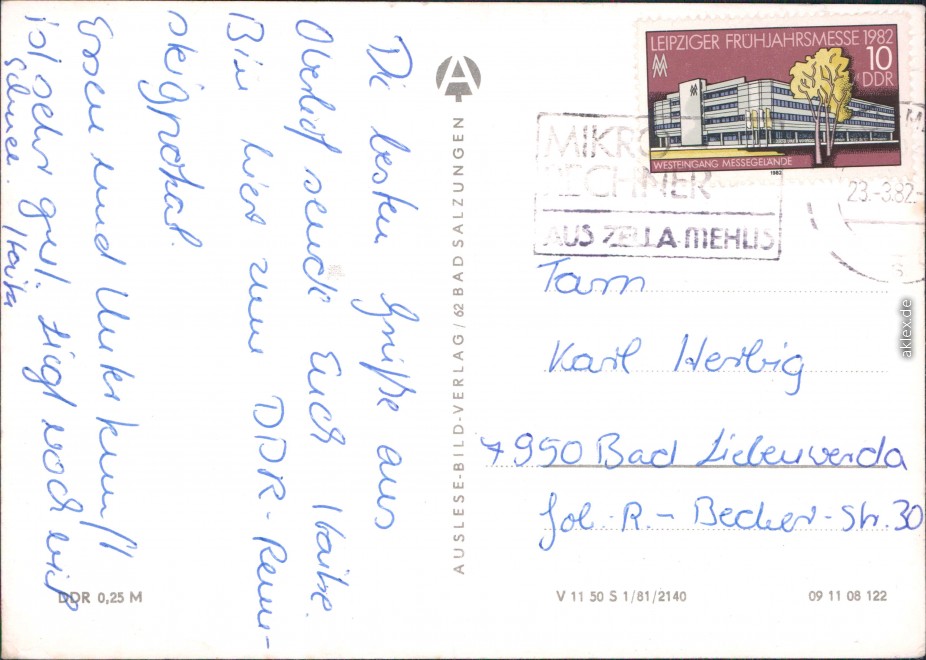 Die besten Grüße aus
Oberhof sendet Euch
Bin hier zum DDR-Renn-
Essen und Unterkunft
ist sehr gut. Liegt noch viel
Schnee.
A
AUSLESE-BILD-VERLAG / 62 BAD SALZUNGEN
LEIPZIGER FRÜHJAHRSMESSE 1982
10
DDR
WESTEINGANG MESSEGELÄNDE
1982
MIKRO
RECHNER
AUS ZELLA-MEHLIS
23.-3.82.-
Fam
Karl Herbig
7950 Bad Liebenwerda
Joh.-R.-Becher-Str. 30
DDR 0,25 M
V 11 50 S 1/81/2140
09 11 08 122
aklex.de